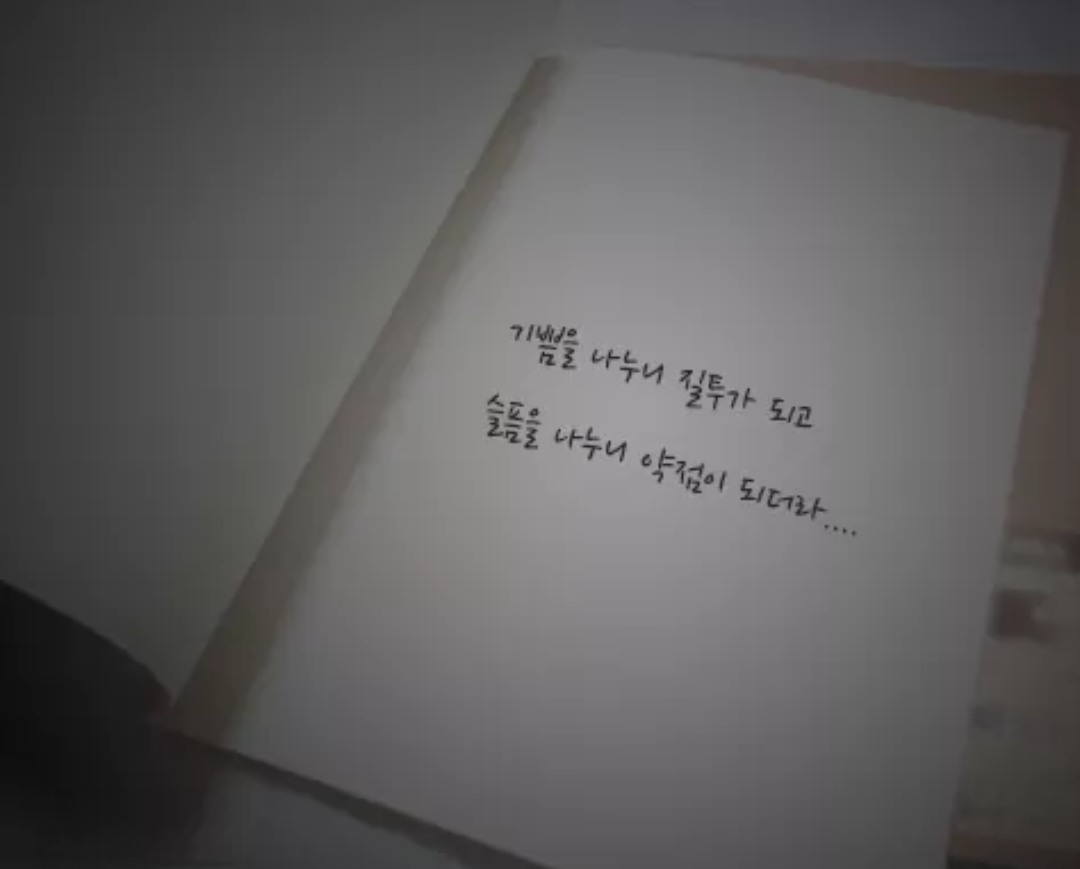 기쁨을 나누니 질투가 되고
슬픔을 나누니 약점이 되더라....